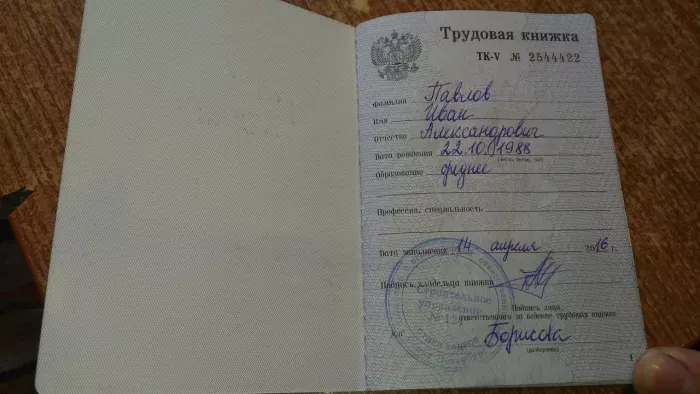 Трудовая книжка
ТК-V № 2544422
Фамилия Павлов
Имя Иван
Отчество Александрович
Дата рождения 22.10.1988
(число, месяц, год)
Образование среднее
Профессия, специальность
Дата заполнения 14 апреля 2016 г.
Подпись владельца книжки
Строительное
управление
Подпись лица,
ответственного за ведение трудовых книжек
Борисова
(разборчиво)
1